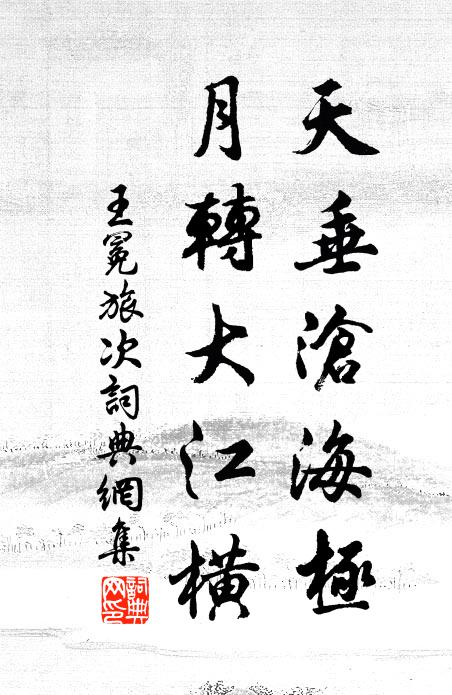 天垂滄海極
月轉大江橫
王冕旅次詞典網集
詞典網印